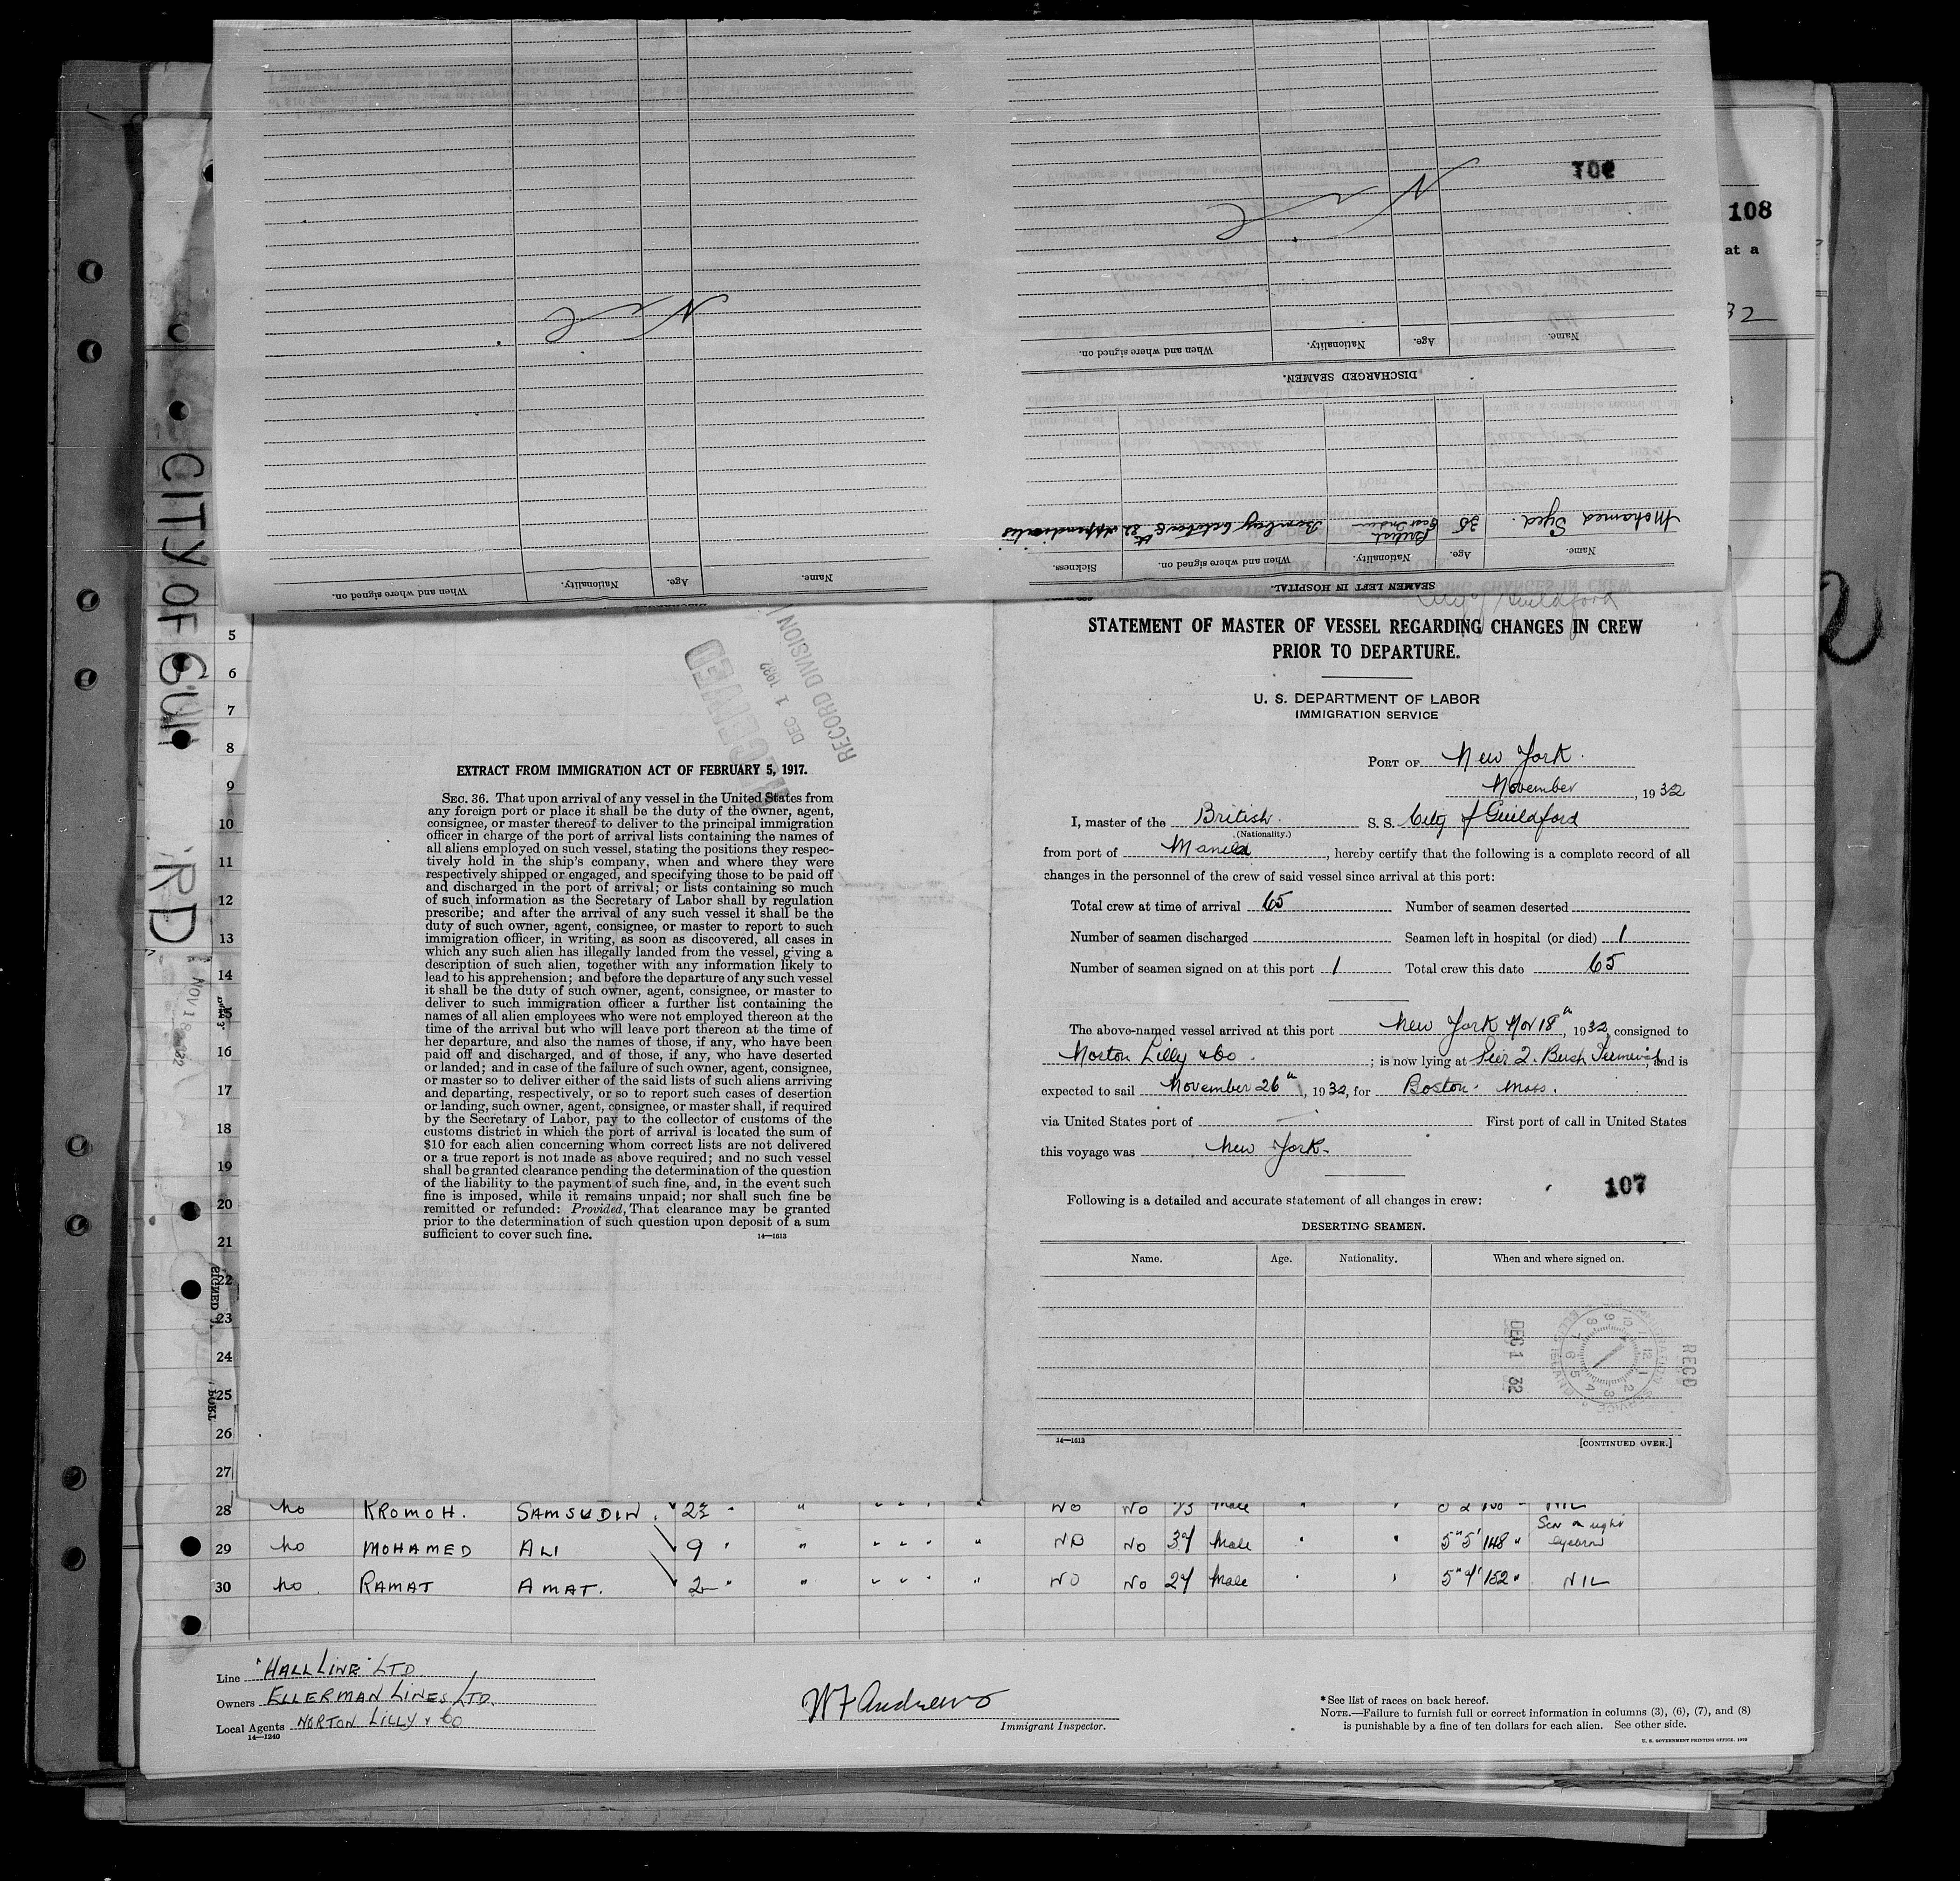 106
Name.
Age.
Nationality.
When and where signed on.
DISCHARGED SEAMEN.
Mohamed Syed.
35
British
East Indian
Name.
Age.
Nationality.
When and where signed on.
Sickness.
SEAMEN LEFT IN HOSPITAL.
Name.
Age.
Nationality.
When and where signed on.
108
at a
32
CITY OF GUI
RD
NOV 18 1932
RECEIVED
DEC 1 1932
RECORD DIVISION
EXTRACT FROM IMMIGRATION ACT OF FEBRUARY 5, 1917.
SEC. 36. That upon arrival of any vessel in the United States from
any foreign port or place it shall be the duty of the owner, agent,
consignee, or master thereof to deliver to the principal immigration
officer in charge of the port of arrival lists containing the names of
all aliens employed on such vessel, stating the positions they respec-
tively hold in the ship's company, when and where they were
respectively shipped or engaged, and specifying those to be paid off
and discharged in the port of arrival; or lists containing so much
of such information as the Secretary of Labor shall by regulation
prescribe; and after the arrival of any such vessel it shall be the
duty of such owner, agent, consignee, or master to report to such
immigration officer, in writing, as soon as discovered, all cases in
which any such alien has illegally landed from the vessel, giving a
description of such alien, together with any information likely to
lead to his apprehension; and before the departure of any such vessel
it shall be the duty of such owner, agent, consignee, or master to
deliver to such immigration officer a further list containing the
names of all alien employees who were not employed thereon at the
time of the arrival but who will leave port thereon at the time of
her departure, and also the names of those, if any, who have been
paid off and discharged, and of those, if any, who have deserted
or landed; and in case of the failure of such owner, agent, consignee,
or master so to deliver either of the said lists of such aliens arriving
and departing, respectively, or so to report such cases of desertion
or landing, such owner, agent, consignee, or master shall, if required
by the Secretary of Labor, pay to the collector of customs of the
customs district in which the port of arrival is located the sum of
$10 for each alien concerning whom correct lists are not delivered
or a true report is not made as above required; and no such vessel
shall be granted clearance pending the determination of the question
of the liability to the payment of such fine, and, in the event such
fine is imposed, while it remains unpaid; nor shall such fine be
remitted or refunded: Provided, That clearance may be granted
prior to the determination of such question upon deposit of a sum
sufficient to cover such fine.
14—1613
City of Guildford
STATEMENT OF MASTER OF VESSEL REGARDING CHANGES IN CREW
PRIOR TO DEPARTURE.
U. S. DEPARTMENT OF LABOR
IMMIGRATION SERVICE
PORT OF New York.
November, 1932
I, master of the British. S. S. City of Guildford
(Nationality.)
from port of Manila, hereby certify that the following is a complete record of all
changes in the personnel of the crew of said vessel since arrival at this port:
Total crew at time of arrival 65 Number of seamen deserted
Number of seamen discharged Seamen left in hospital (or died) 1
Number of seamen signed on at this port 1 Total crew this date 65
The above-named vessel arrived at this port New York Nov 18th, 1932, consigned to
Norton Lilly & Co. ; is now lying at Pier 2. Bush Terminal, and is
expected to sail November 26th, 1932, for Boston. Mass.
via United States port of — First port of call in United States
this voyage was New York.
107
Following is a detailed and accurate statement of all changes in crew:
DESERTING SEAMEN.
Name. Age. Nationality. When and where signed on.
DEC 1 32
RECD
14—1613 [CONTINUED OVER.]
5
6
7
8
9
10
11
12
13
14
15
16
17
18
19
20
21
22
23
24
25
26
27
28 no KROMOH. SAMSUDIN.
29 no MOHAMED ALI 9 " " " " " NO No 37 Male 5"5' 148 " Scar on right eyebrow
30 no. RAMAT AMAT. 2 " " " " " NO No 24 Male 5"4' 152 " NIL
Line "HALL LINE" LTD
Owners ELLERMAN LINES LTD.
Local Agents NORTON LILLY & CO
14—1240
W F Andrews
Immigrant Inspector.
*See list of races on back hereof.
NOTE.—Failure to furnish full or correct information in columns (3), (6), (7), and (8)
is punishable by a fine of ten dollars for each alien. See other side.